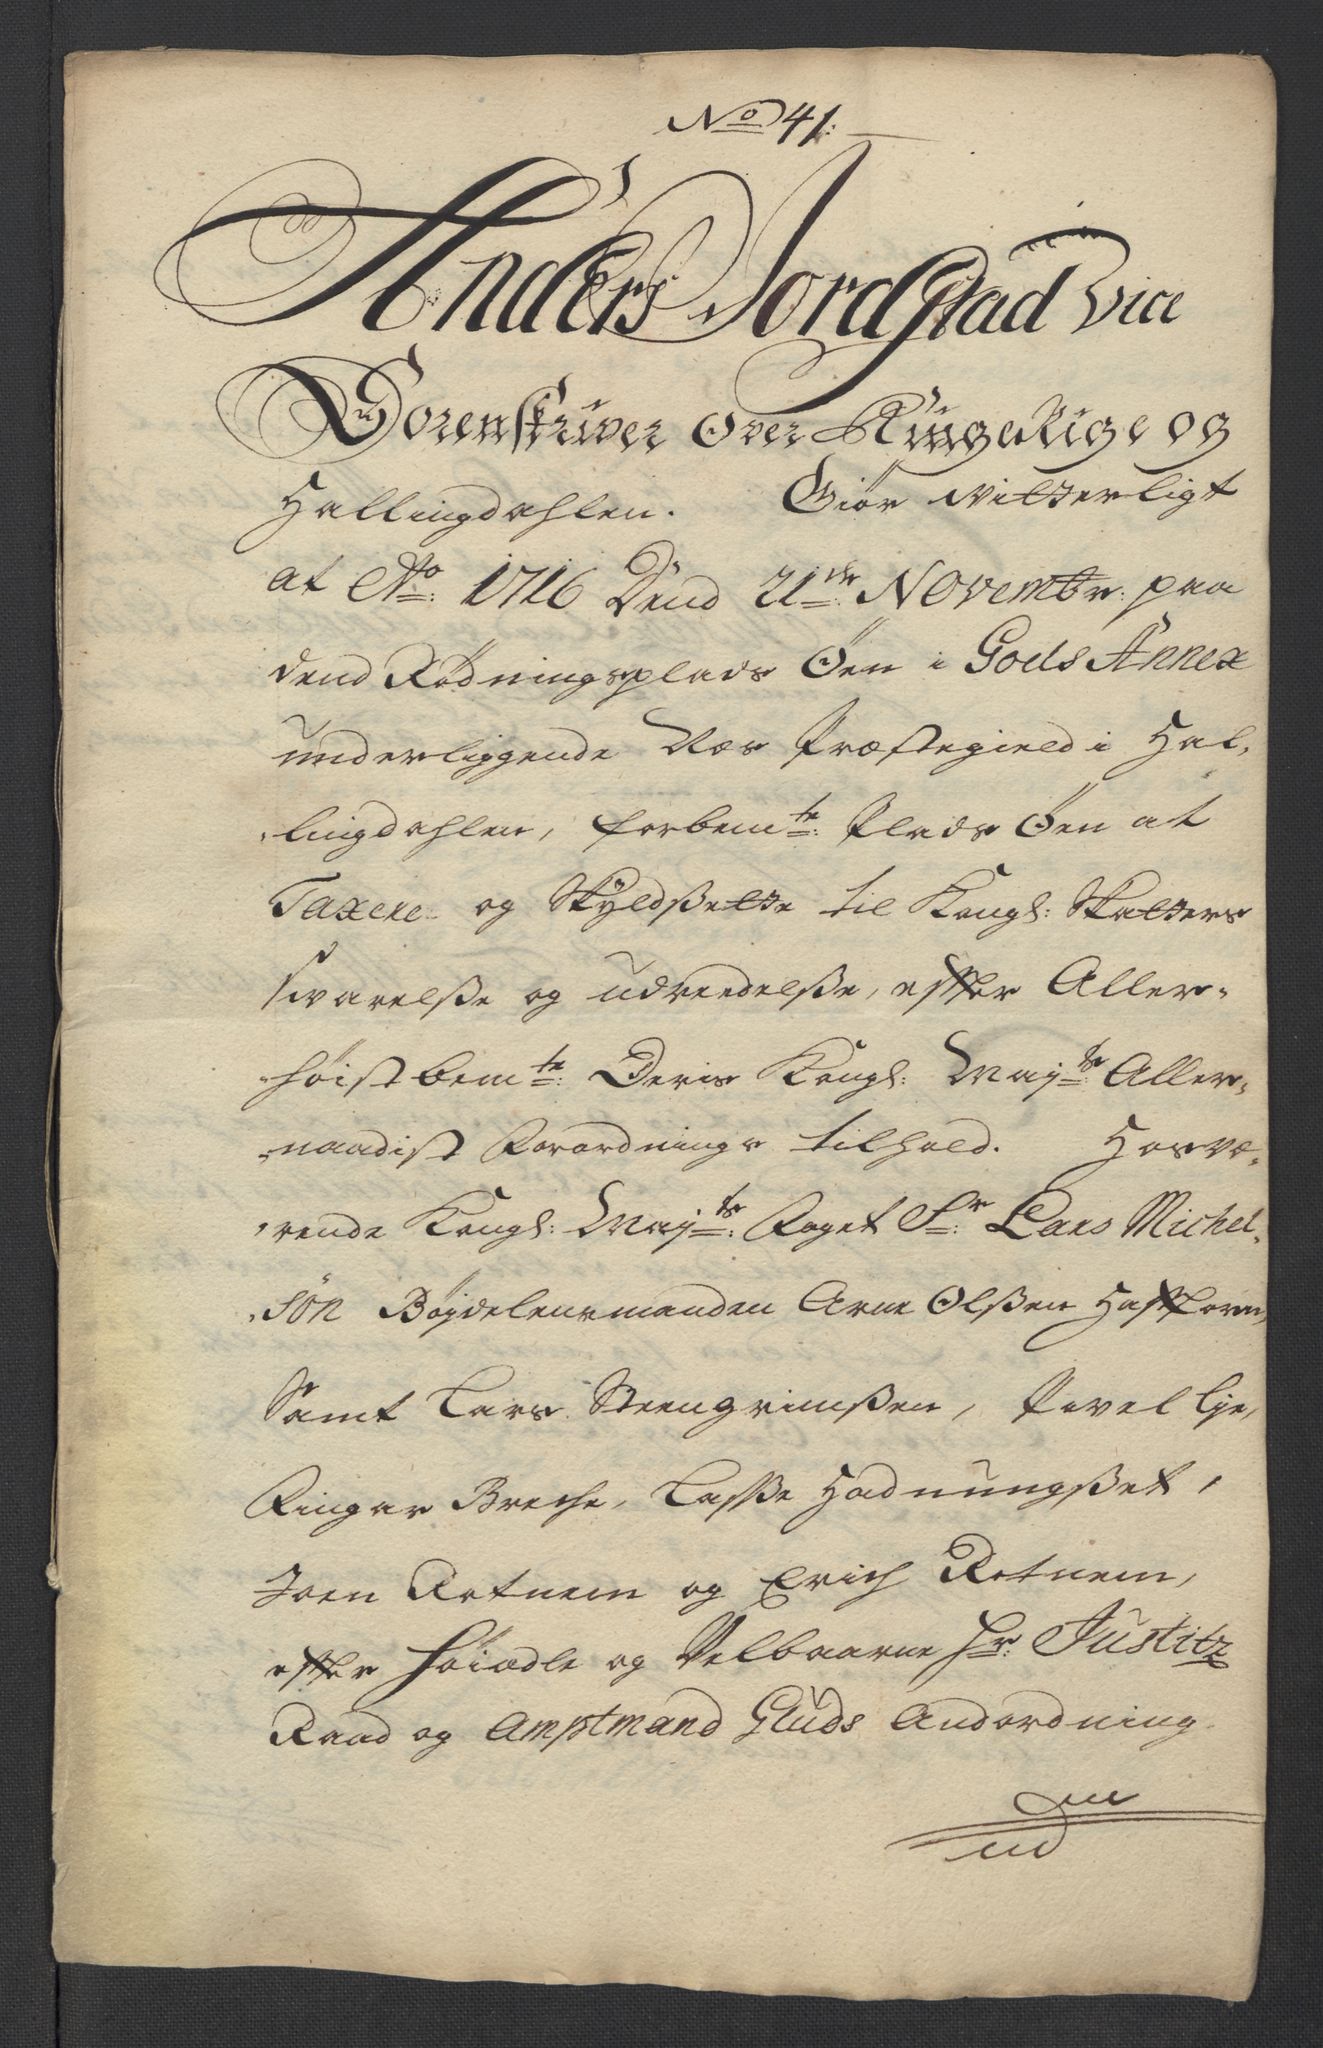 No 41:
Anders Jordstad vice
Sorenskriver over Ringerige og
Hallingdahlen. Giör vitterligt
at Ao: 1716 Dend 21de Novembr: paa
dend Rödningsplads Öen i Gols Annex
underliggende Næs Præstegield i Hal,
lingdahlen, forbemte: Plads Öen at
Taxere og Skyldsette til Kongl: Skatters
svarelße og udreedelße, effter Aller-
höistbemte: Deris Kongl: Mayts: Aller-
naadist Forordnings tilhold. Hosvæ-
rende Kongl: Mayts: Foget Sr: Lars Michel-
sön Böjdelensmanden Arne Olßen Hafftorn,
Samt Lars Steengrimßen, Povel Lye,
Ringar Breche, Laße Hadnungßet,
Joen Rotnem og Erich Rotnem,
effter Höiædle og Velbaarne Hr: Justitz
Raad og Amptmand Gluds Andordning.